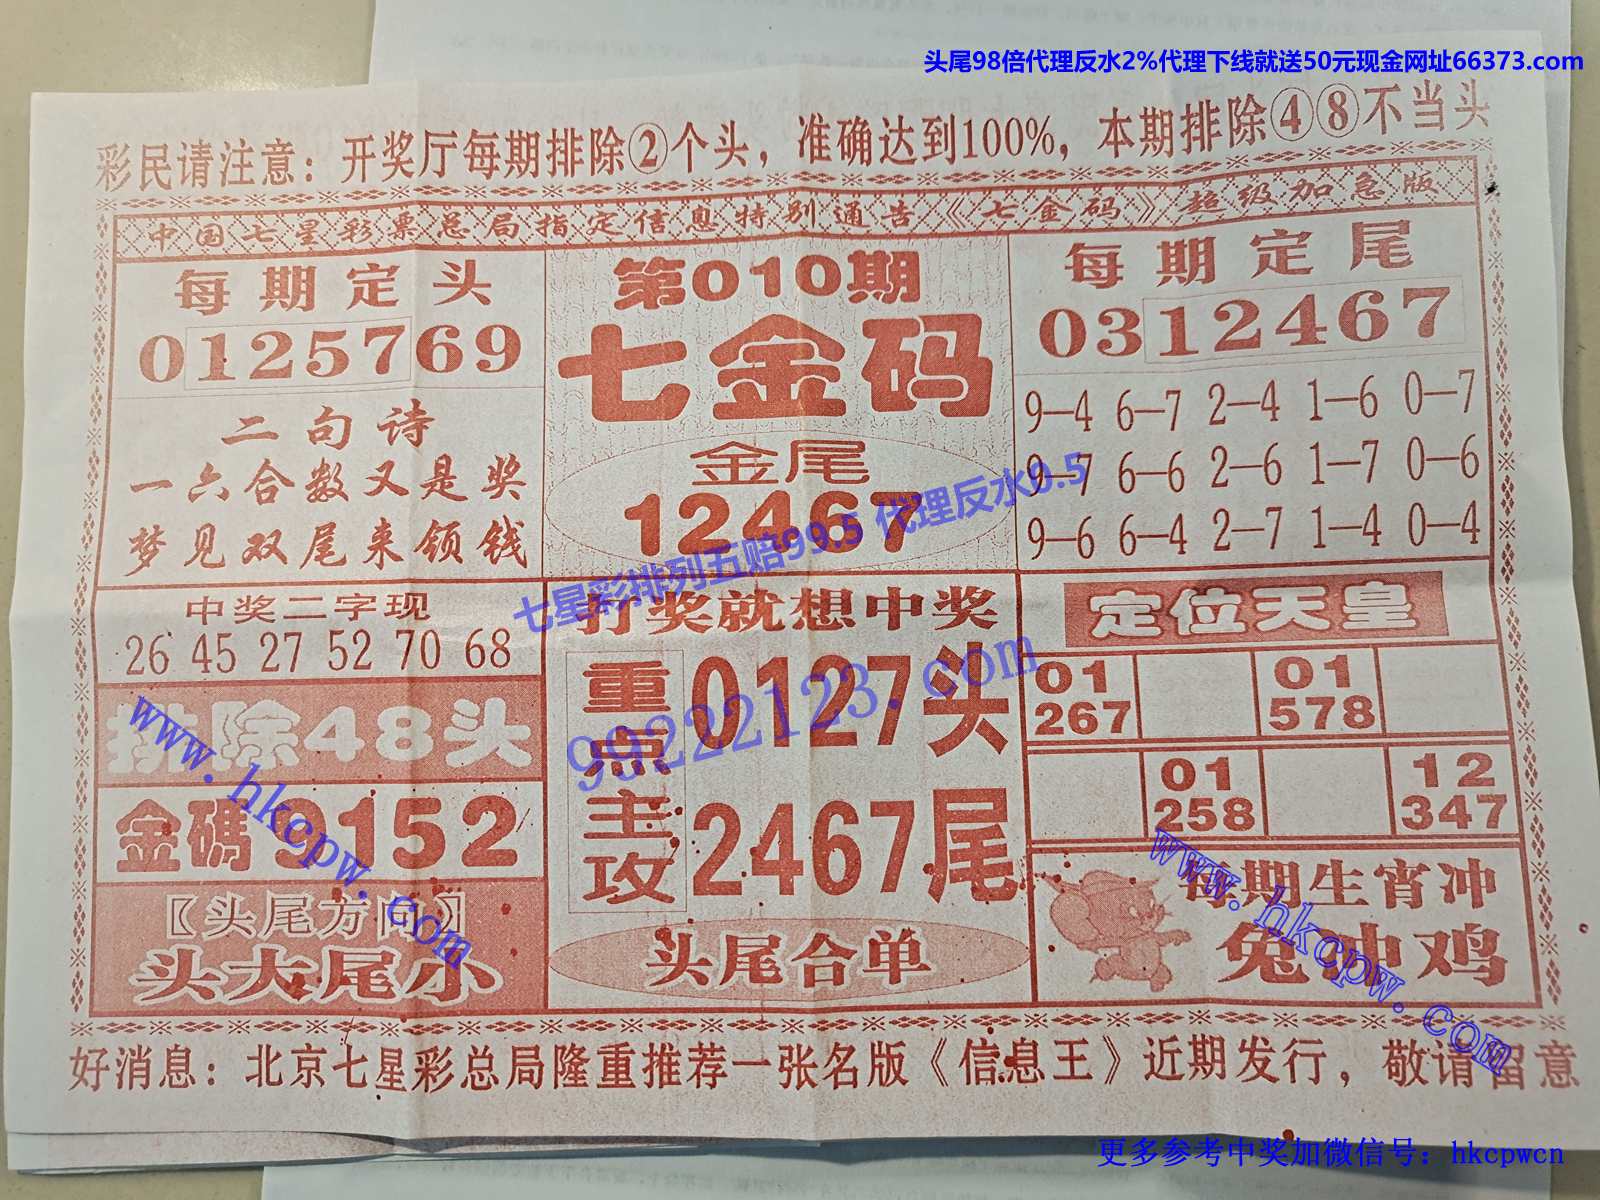 头尾98倍代理反水2%代理下线就送50元现金网址66373.com
彩民请注意：开奖厅每期排除②个头，准确达到100%，本期排除④⑧不当头
中国七星彩票总局指定信息特别通告《七金码》超级加急版
每期定头
0125769
二句诗
一六合数又是奖
梦见双尾来领钱
第010期
七金码
金尾
12467
每期定尾
0312467
9—4 6—7 2—4 1—6 0—7
9—7 6—6 2—6 1—7 0—6
9—6 6—4 2—7 1—4 0—4
七星彩排列五赔99.5 代理反水0.5
中奖二字现
26 45 27 52 70 68
排除48头
金碼9152
〖头尾方向〗
头大尾小
打奖就想中奖
重点主攻
0127头
2467尾
99222123.com
头尾合单
定位天皇
01
267
01
578
01
258
12
347
每期生宵冲
兔冲鸡
www.hkcpw.com
www.hkcpw.com
好消息：北京七星彩总局隆重推荐一张名版《信息王》近期发行，敬请留意
更多参考中奖加微信号：hkcpwcn